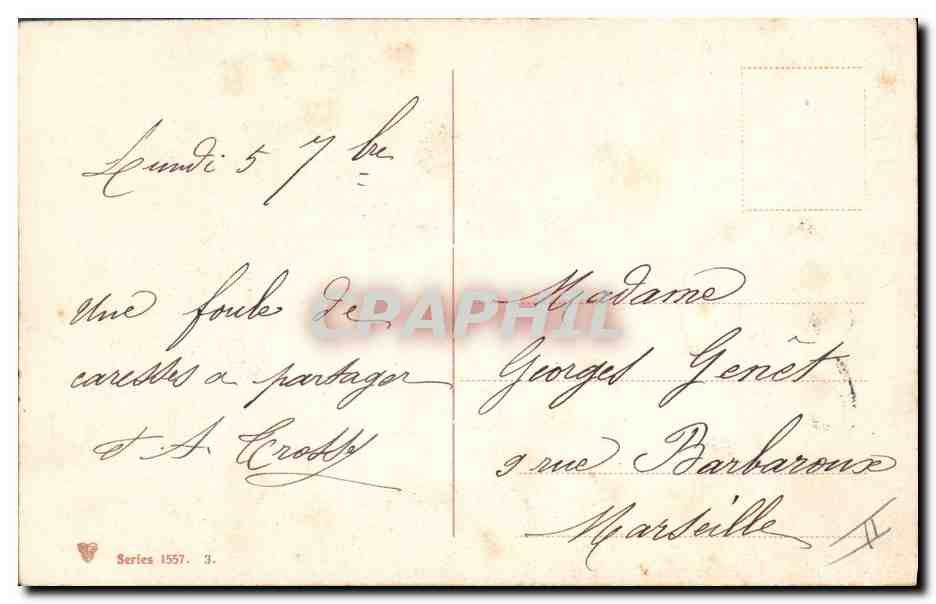 Lundi 5 7bre
Une foule de
caresses a partager
d' A.
Madame
Georges Genêt
9 rue Barbaroux
Marseille
CPAPHIL
Series 1557. 3.
II